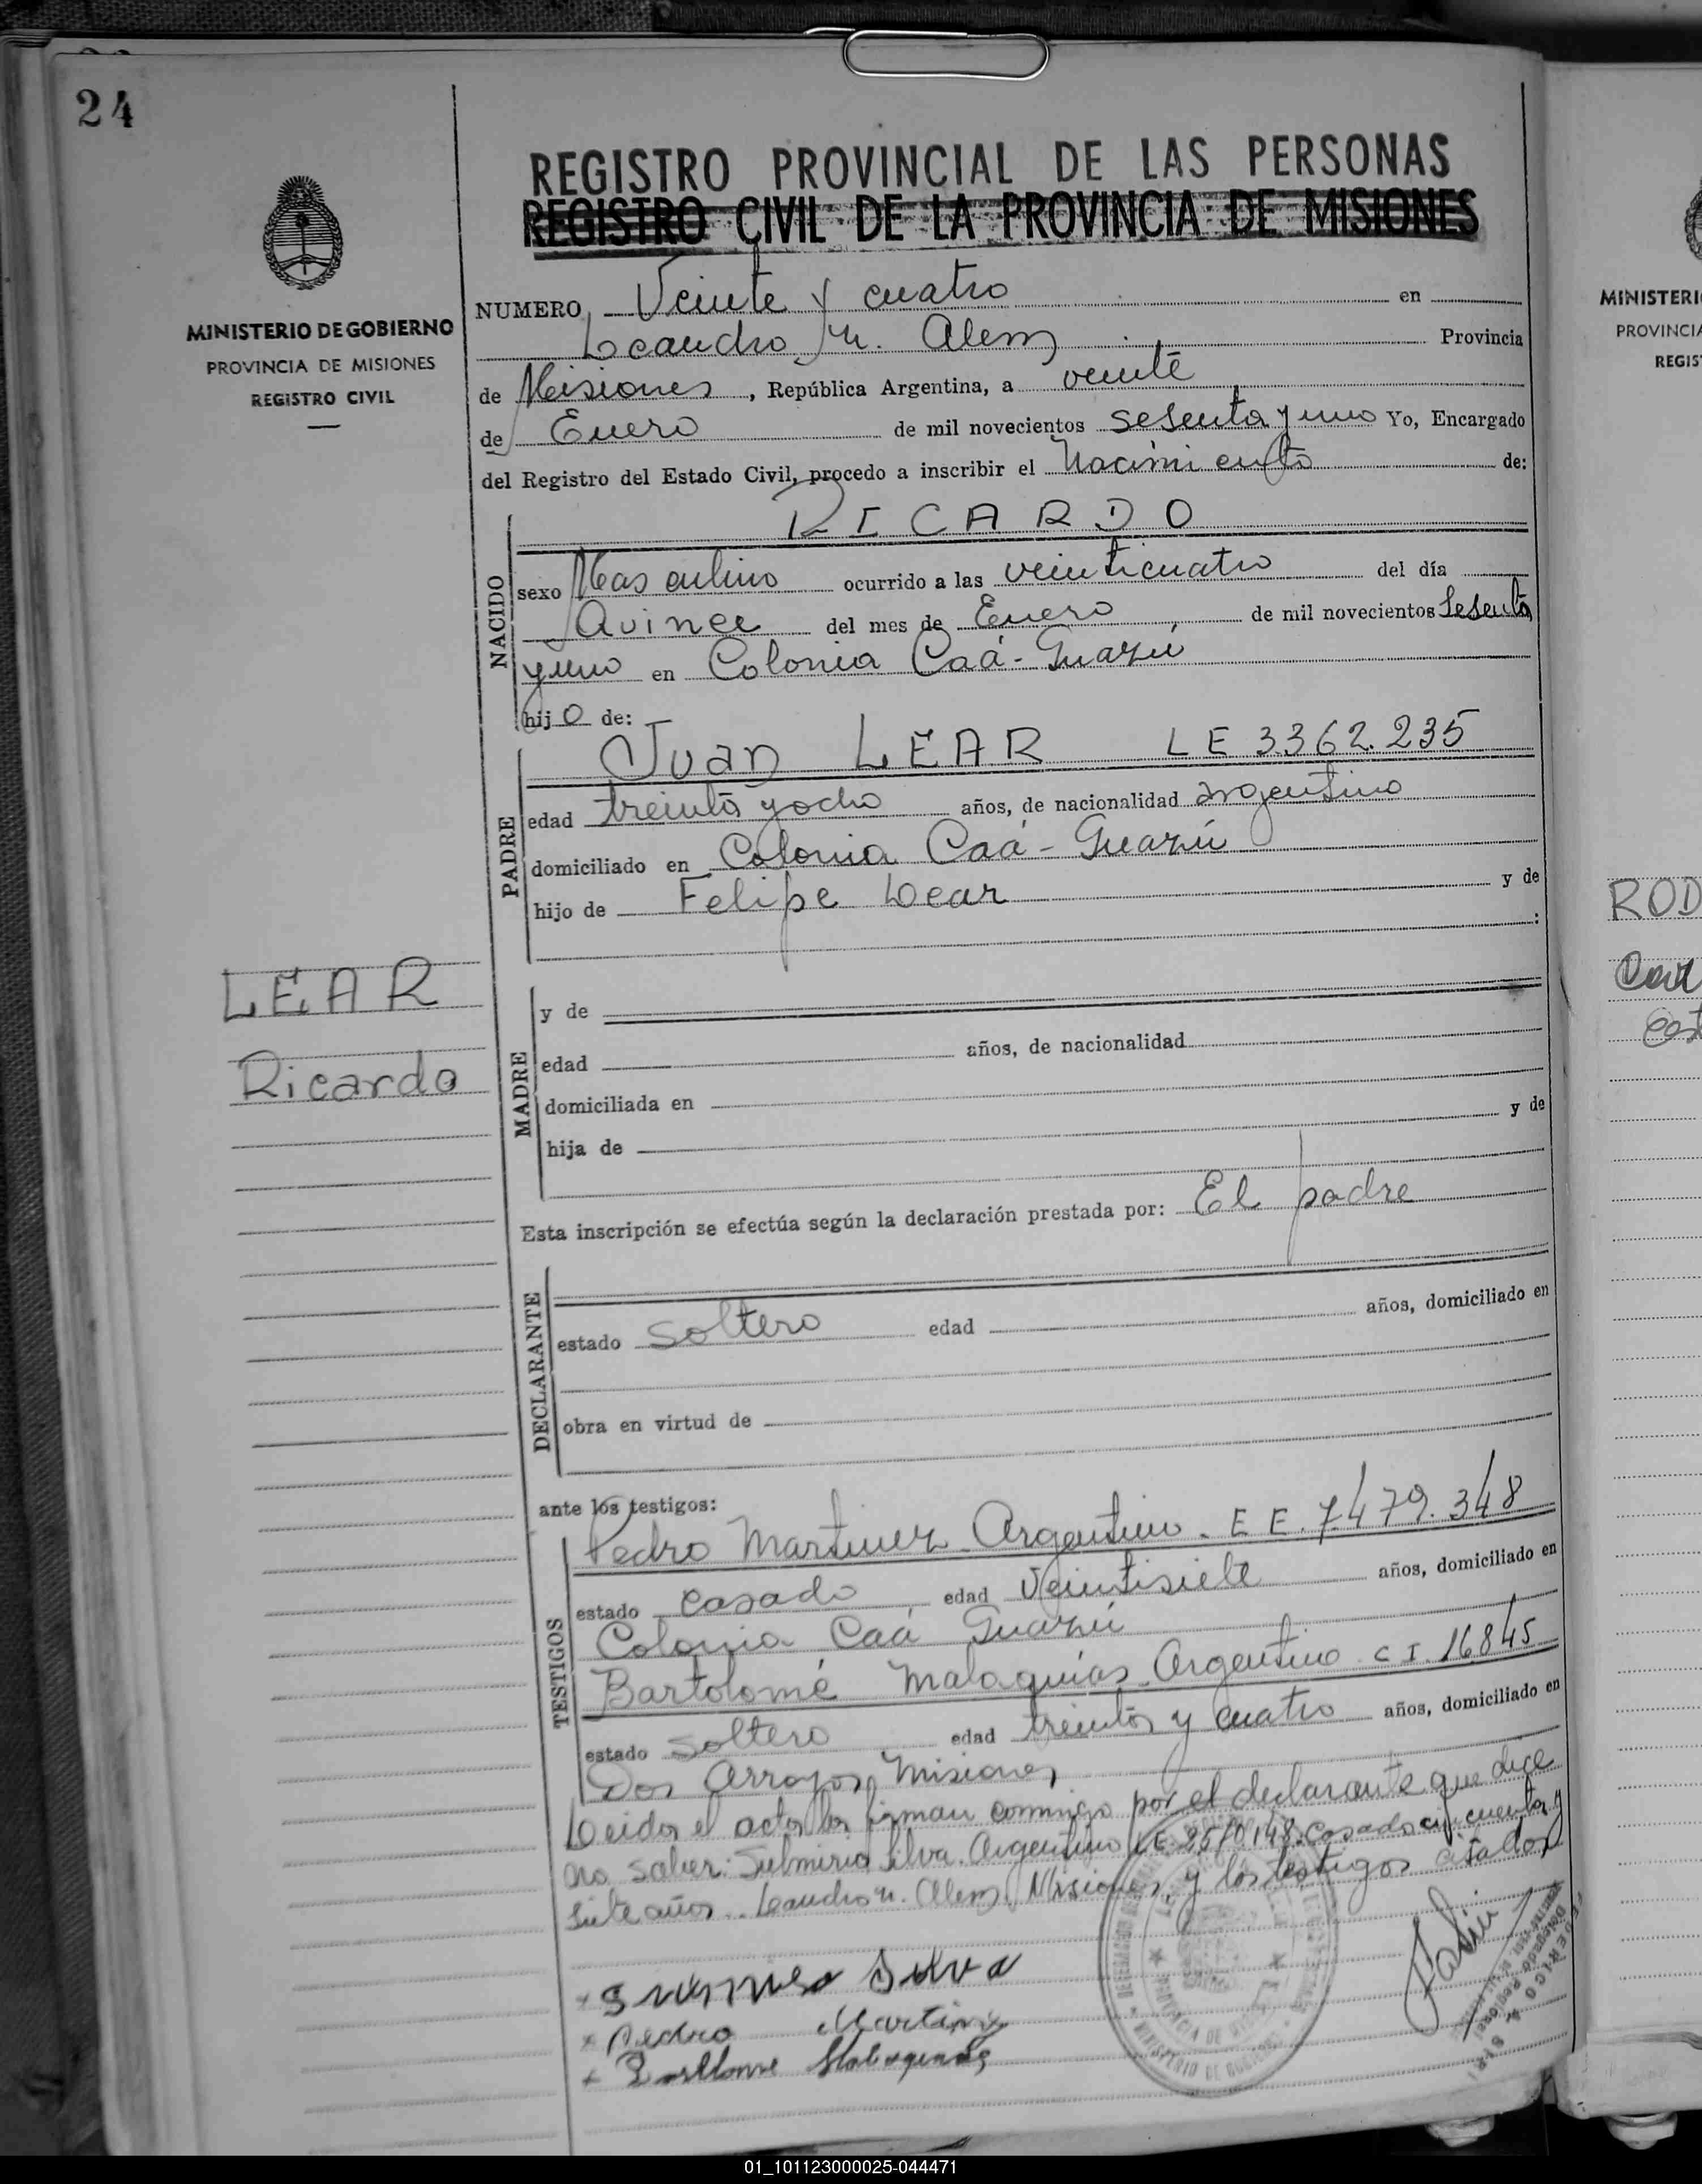 24
REGISTRO PROVINCIAL DE LAS PERSONAS
REGISTRO CIVIL DE LA PROVINCIA DE MISIONES
MINISTERIO DE GOBIERNO
PROVINCIA DE MISIONES
REGISTRO CIVIL
NUMERO Veinte y cuatro en
Leandro N. Alem Provincia
de Misiones, República Argentina, a veinte
de Enero de mil novecientos sesenta y uno Yo, Encargado
del Registro del Estado Civil, procedo a inscribir el Nacimiento de:
RICARDO
NACIDO
sexo Masculino ocurrido a las veinticuatro del día
Quince del mes de Enero de mil novecientos Sesenta
y uno en Colonia Caá-Guazú
hijo de:
Juan LEAR LE 3362.235
PADRE
edad treinta y ocho años, de nacionalidad argentino
domiciliado en Colonia Caá-Guazú
hijo de Felipe Lear y de
:
LEAR
Ricardo
MADRE
y de
edad años, de nacionalidad
domiciliada en
hija de y de
Esta inscripción se efectúa según la declaración prestada por: El padre
DECLARANTE
estado soltero edad años, domiciliado en
obra en virtud de
ante los testigos:
TESTIGOS
Pedro Martinez Argentino. E E. 7.479.348
estado casado edad Veintisiete años, domiciliado en
Colonia Caá Guazú
Bartolomé Malaquias Argentino C I. 16845
estado soltero edad treinta y cuatro años, domiciliado en
Dos Arroyos, Misiones
Leida el acta la firman conmigo por el declarante que dice
no saber: Silva. Argentino LE 2570148. Casado cincuenta y
siete años. Leandro N. Alem, Misiones, y los testigos citados
Silva
Pedro Martinez
Malaquias
PROVINCIA DE
MINISTERIO DE GOBIERNO
Delegado Regional
MINISTERI
PROVINCIA
REGIS
ROD
01_101123000025-044471